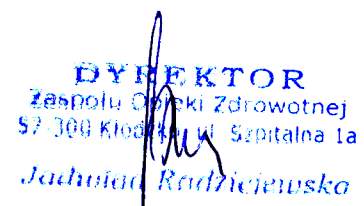 DYREKTOR
Zespołu Opieki Zdrowotnej
57-300 Kłodzko, ul. Szpitalna 1a
Jadwiga Radziejewska